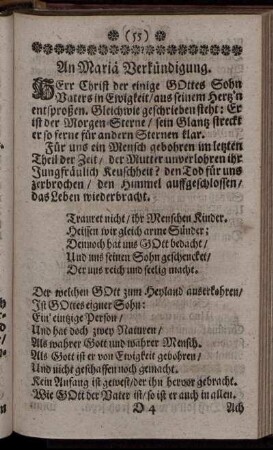 (55)
An Mariä Verkündigung.
HErr Christ der einige GOttes Sohn
Vaters in Ewigkeit/ aus seinem Hertz'n
entsproßen. Gleichwie geschrieben steht: Er
ist der Morgen-Sterne/ sein Glantz streckt
er so ferne für andern Sternen klar.
Für uns ein Mensch gebohren im letzten
Theil der Zeit/ der Mutter unverlohren ihr
Jungfräulich Keuschheit? den Tod für uns
zerbrochen/ den Himmel auffgeschlossen/
das Leben wiederbracht.
Trauret nicht/ ihr Menschen Kinder.
Heissen wir gleich arme Sünder;
Dennoch hat uns GOtt bedacht/
Und uns seinen Sohn geschencket/
Der uns reich und seelig macht.
Der welchen GOtt zum Heyland auserkohren/
Ist GOttes eigner Sohn:
Ein' eintzige Person/
Und hat doch zwey Naturen/
Als wahrer Gott und wahrer Mensch.
Als Gott ist er von Ewigkeit gebohren/
Und nicht geschaffen noch gemacht.
Kein Anfang ist gewest/ der ihn hervor gebracht.
Wie GOtt der Vater ist/ so ist er auch in allen.
D 4 Ach